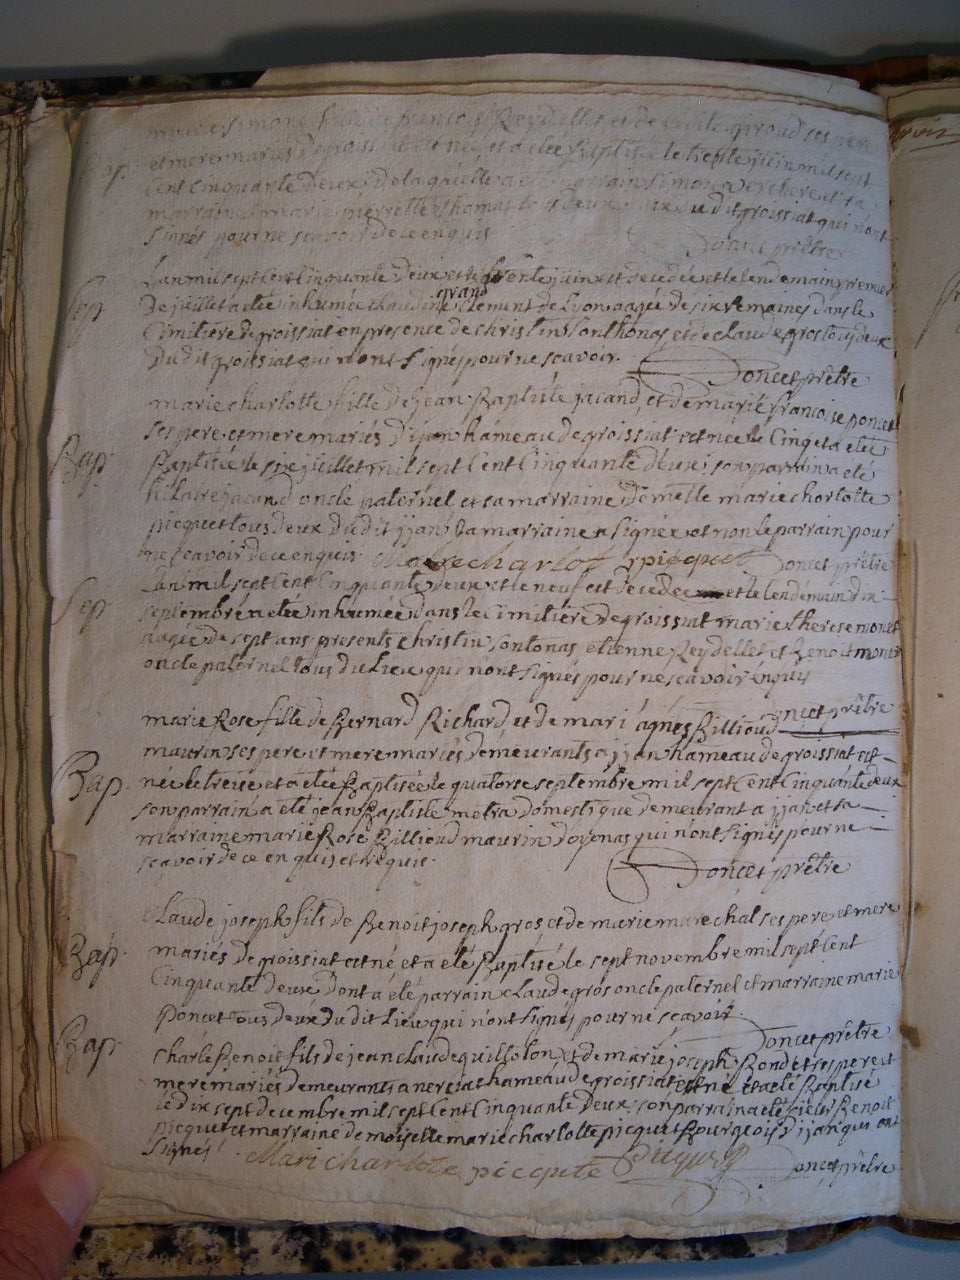 marie simone fille de francois Reydellet et de giroud ses pere
Bap. et mere mariés de groissiat est née et a étée Baptisée le trente juin mil sept
cent cinquante deux de laquelle a été parrain simon et sa
marraine marie pierrette thomas tous deux dudit groissiat qui n'ont
signés pour ne scavoir de ce enquis
Doncet prêtre
L'an mil sept Cent Cinquante deux et le trente juin est decedée et le lendemain premier
Sep. De juillet a étée inhumée claudine grand clement de Lyon agée de six semaines dans le
Cimitiere de groissiat en presence de christin sonthonas et de claude gros tous deux
Du dit groissiat qui n'ont signés pour ne scavoir.
Doncet prêtre
marie charlotte fille de jean Baptiste jacand et de marie francoise poncet
ses pere et mere mariés d'ijan hameau de groissiat est née le Cinq et a étée
Bap. Baptisée le six juillet mil sept Cent Cinquante deux; son parrain a été
hilaire jacand oncle paternel et sa marraine demelle marie charlotte
picquet tous deux du dit ijan La marraine a signée et non le parrain pour
ne scavoir de ce enquis marie charlot picquet Doncet prêtre
L'an mil sept Cent Cinquante deux et le neuf est decedée et le lendemain dix
Sep. septembre a étée inhumée dans le Cimitiere de groissiat marie therese monet
agée de sept ans presents christin sontonas etienne Reydellet et Benoit monet
oncle paternel tous du Lieu qui n'ont signés pour ne scavoir enquis
Doncet prêtre
marie Rose fille de Bernard Richard et de mari agnes Billioud
maurin ses pere et mere mariés demeurants a ijan hameau de groissiat est
Bap. née le treize et a étée Baptisée le quatorse septembre mil sept Cent Cinquante deux
son parrain a été jean Baptiste motra domestique demeurant a ijan et sa
marraine marie Rose Billioud maurin d'oyonas qui n'ont signés pour ne
scavoir de ce enquis et requis.
Doncet prêtre
Claude joseph fils de Benoit joseph gros et de marie marechal ses pere et mere
Bap. mariés de groissiat est né et a été Baptisé le sept novembre mil sept Cent
Cinquante deux dont a été parrain claude gros oncle paternel et marraine marie
Poncet tous deux du dit Lieu qui n'ont signés pour ne scavoir.
Doncet prêtre
Bap. Charle Benoit fils de jean claude quilloton et de marie joseph Rondet ses pere et
mere mariés demeurants a nerciat hameau de groissiat est né et a été Baptisé
le dix sept decembre mil sept Cent Cinquante deux; son parrain a été sieur Benoit
picquet et marraine demoiselle marie charlotte picquet Bourgeois d'ijan qui ont
signés. Mari charlote picquete Picquet Doncet prêtre